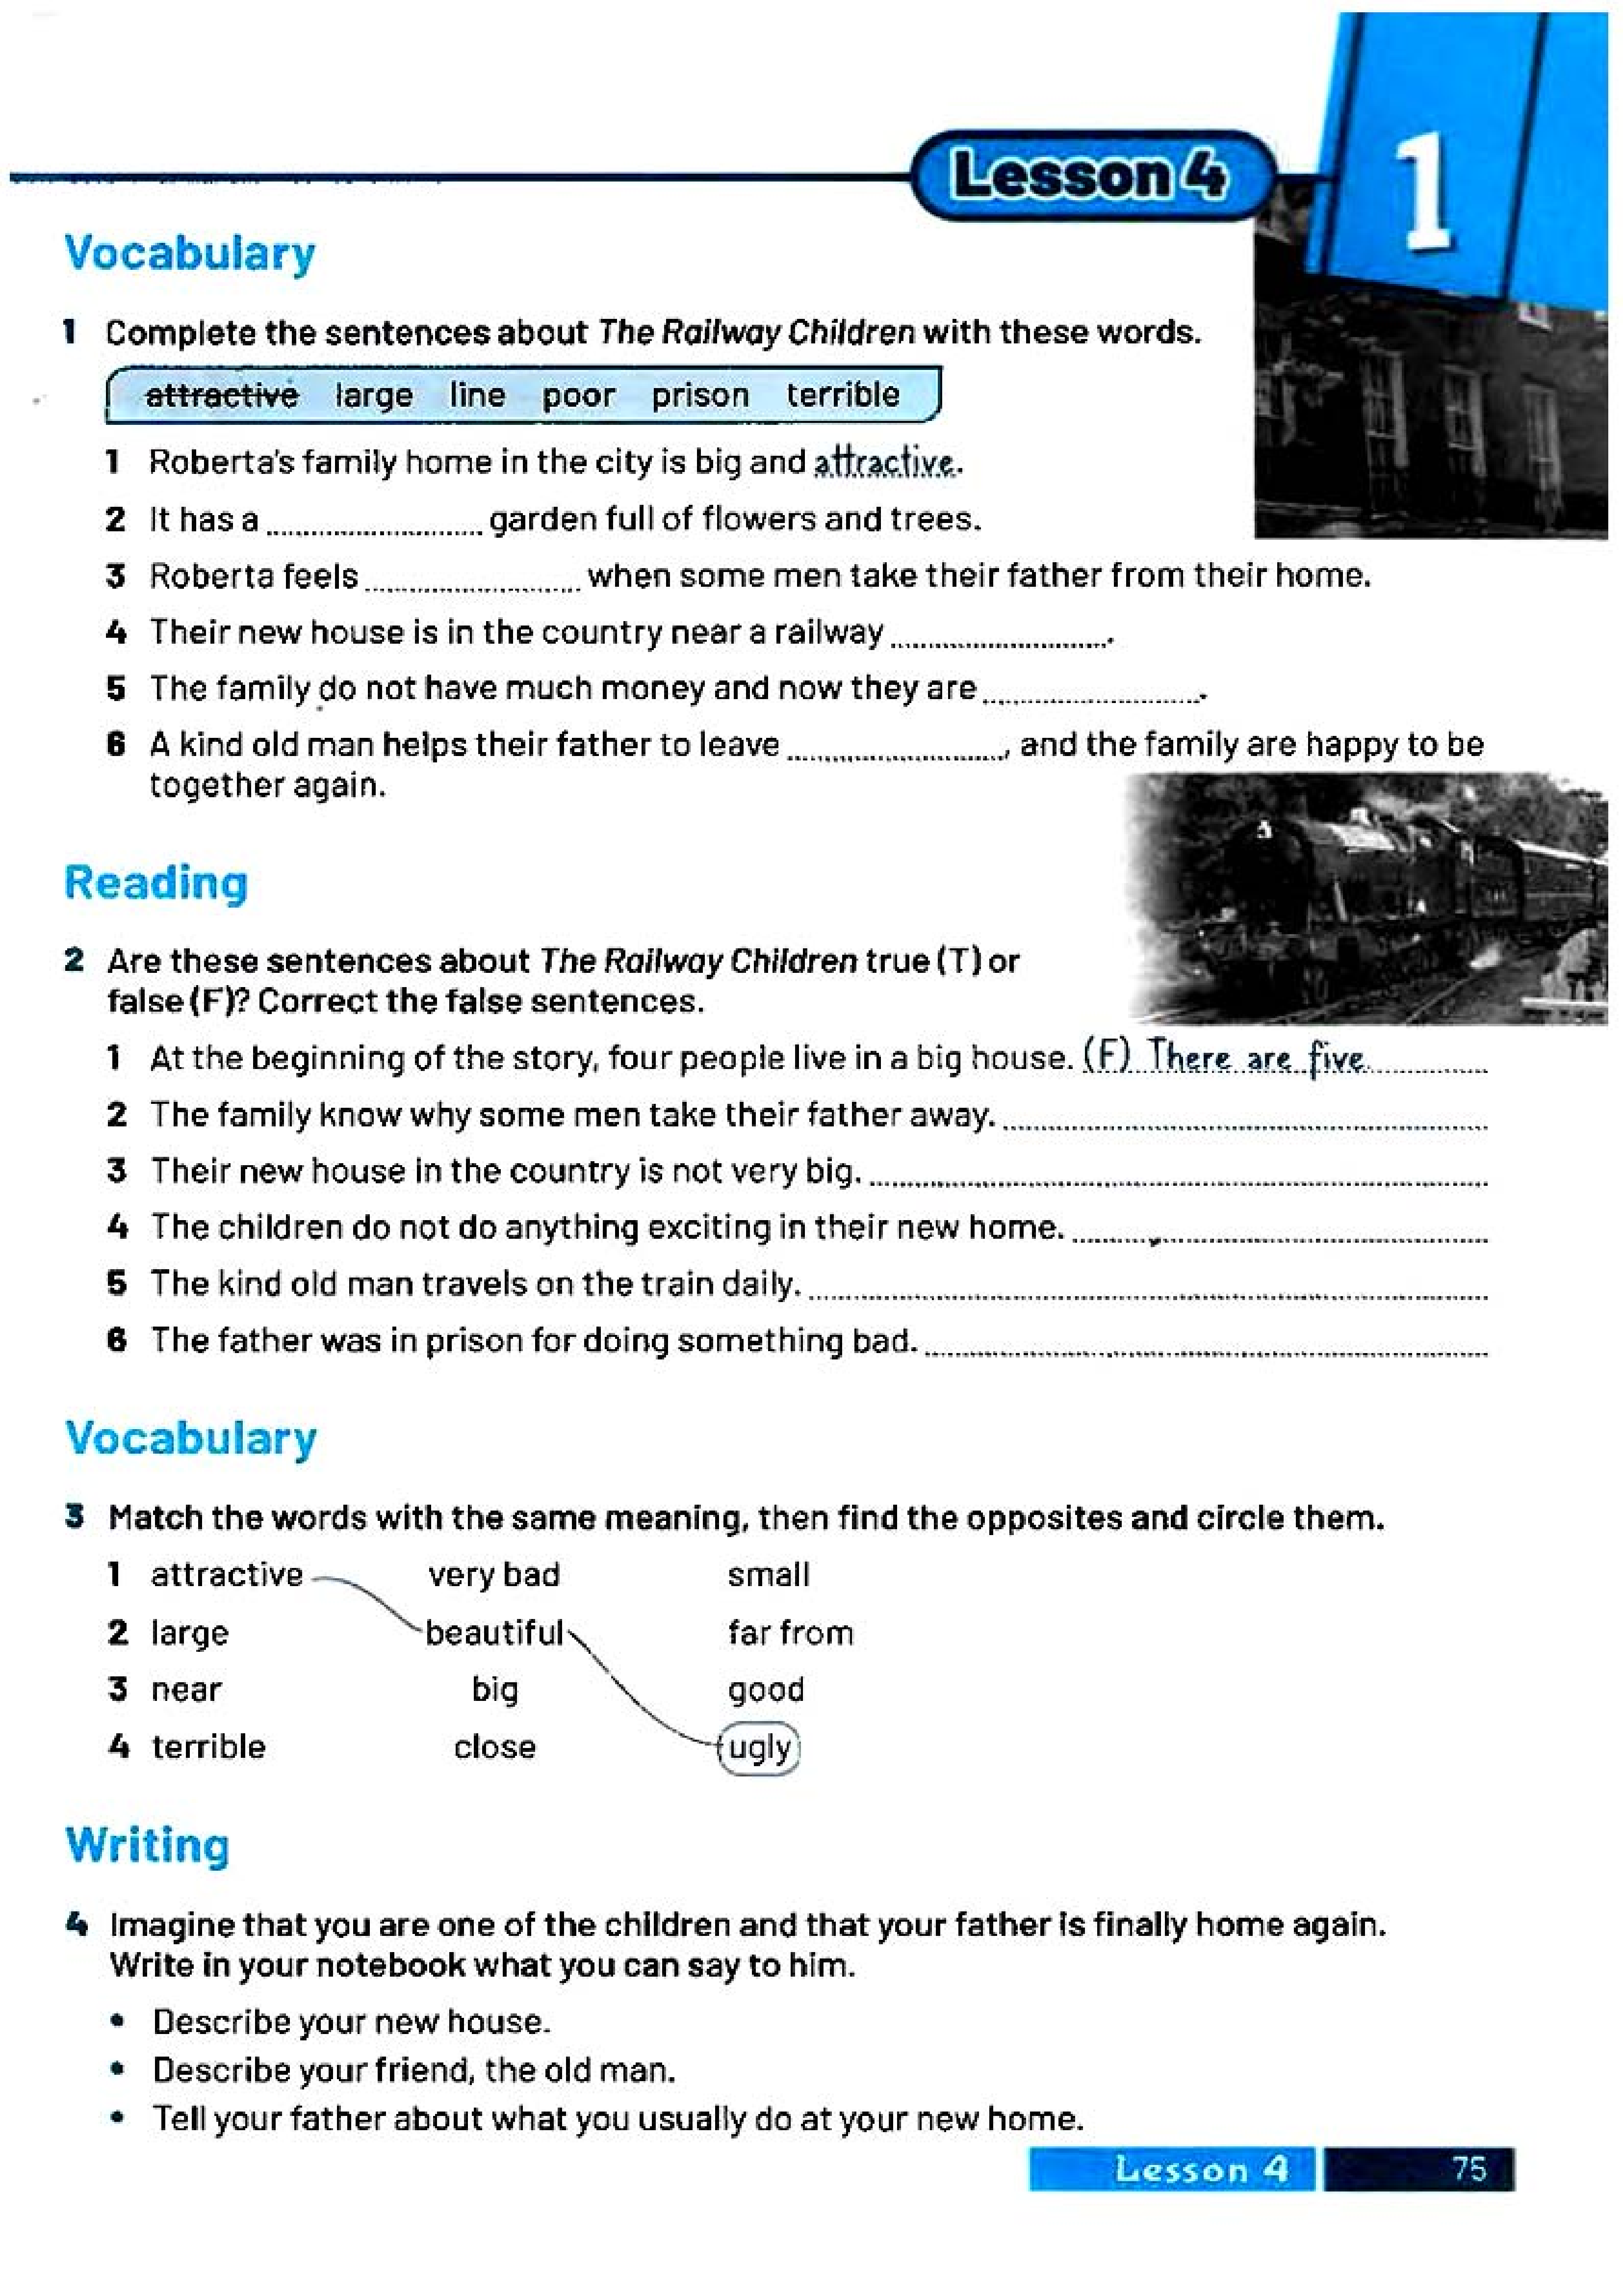 Lesson 4
1
Vocabulary
1 Complete the sentences about The Railway Children with these words.
attractive large line poor prison terrible
1 Roberta's family home in the city is big and attractive.
2 It has a ........................ garden full of flowers and trees.
3 Roberta feels ........................ when some men take their father from their home.
4 Their new house is in the country near a railway .........................
5 The family do not have much money and now they are .........................
6 A kind old man helps their father to leave ........................, and the family are happy to be
together again.
Reading
2 Are these sentences about The Railway Children true (T) or
false (F)? Correct the false sentences.
1 At the beginning of the story, four people live in a big house. (F) There are five.
2 The family know why some men take their father away. ........................
3 Their new house in the country is not very big. ........................
4 The children do not do anything exciting in their new home. ........................
5 The kind old man travels on the train daily. ........................
6 The father was in prison for doing something bad. ........................
Vocabulary
3 Match the words with the same meaning, then find the opposites and circle them.
1 attractive very bad small
2 large beautiful far from
3 near big good
4 terrible close ugly
Writing
4 Imagine that you are one of the children and that your father is finally home again.
Write in your notebook what you can say to him.
• Describe your new house.
• Describe your friend, the old man.
• Tell your father about what you usually do at your new home.
Lesson 4 75